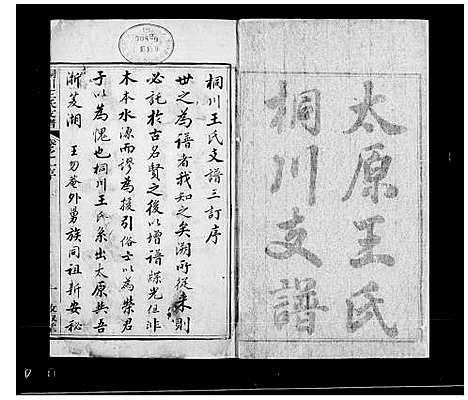 太原王氏
桐川支譜
桐川王氏支譜三訂序
世之為譜者我知之矣溯所從來則
必託於古名賢之後以增譜牒光但非
木本水源而謬為援引俗士以為榮君
子以為愧也桐川王氏系出太原與吾
浙菱湖王勿菴外舅族同祖新安秘